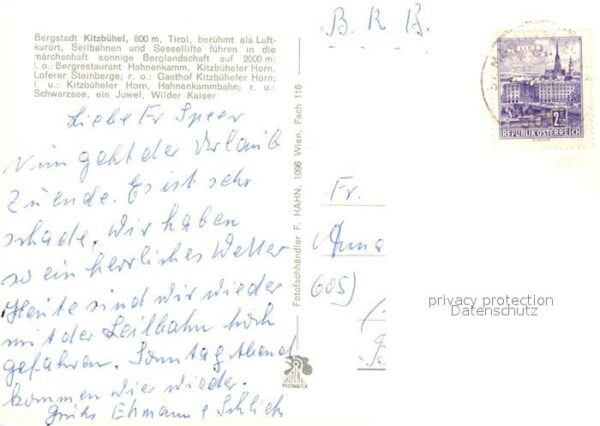 Bergstadt Kitzbühel, 800 m, Tirol, berühmt als Luft-
kurort, Seilbahnen und Sessellifte führen in die
märchenhaft sonnige Berglandschaft auf 2000 m:
l. o.: Bergrestaurant Hahnenkamm, Kitzbüheler Horn,
Loferer Steinberge; r. o.: Gasthof Kitzbüheler Horn,
l. u.: Kitzbüheler Horn, Hahnenkammbahn; r. u.:
Schwarzsee, ein Juwel, Wilder Kaiser
Liebe Fr Speer
Nun geht der Urlaub
zu ende. Es ist sehr
schade. Wir haben
so ein herrliches Wetter
Heute sind wir wieder
mit der Seilbahn hoch
gefahren. Sonntag Abend
kommen wier wieder.
Grüße Ehmann + Schlich
Fotofachhändler F. HAHN, 1096 Wien, Fach 116
B. R. B.
2
REPUBLIK ÖSTERREICH
Fr.
Anna
605)
privacy protection
Datenschutz